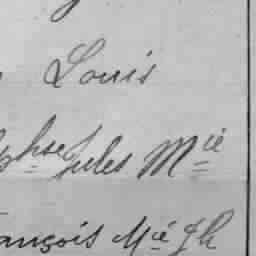 Louis
phse Jules Mie
ançois Mié Jh